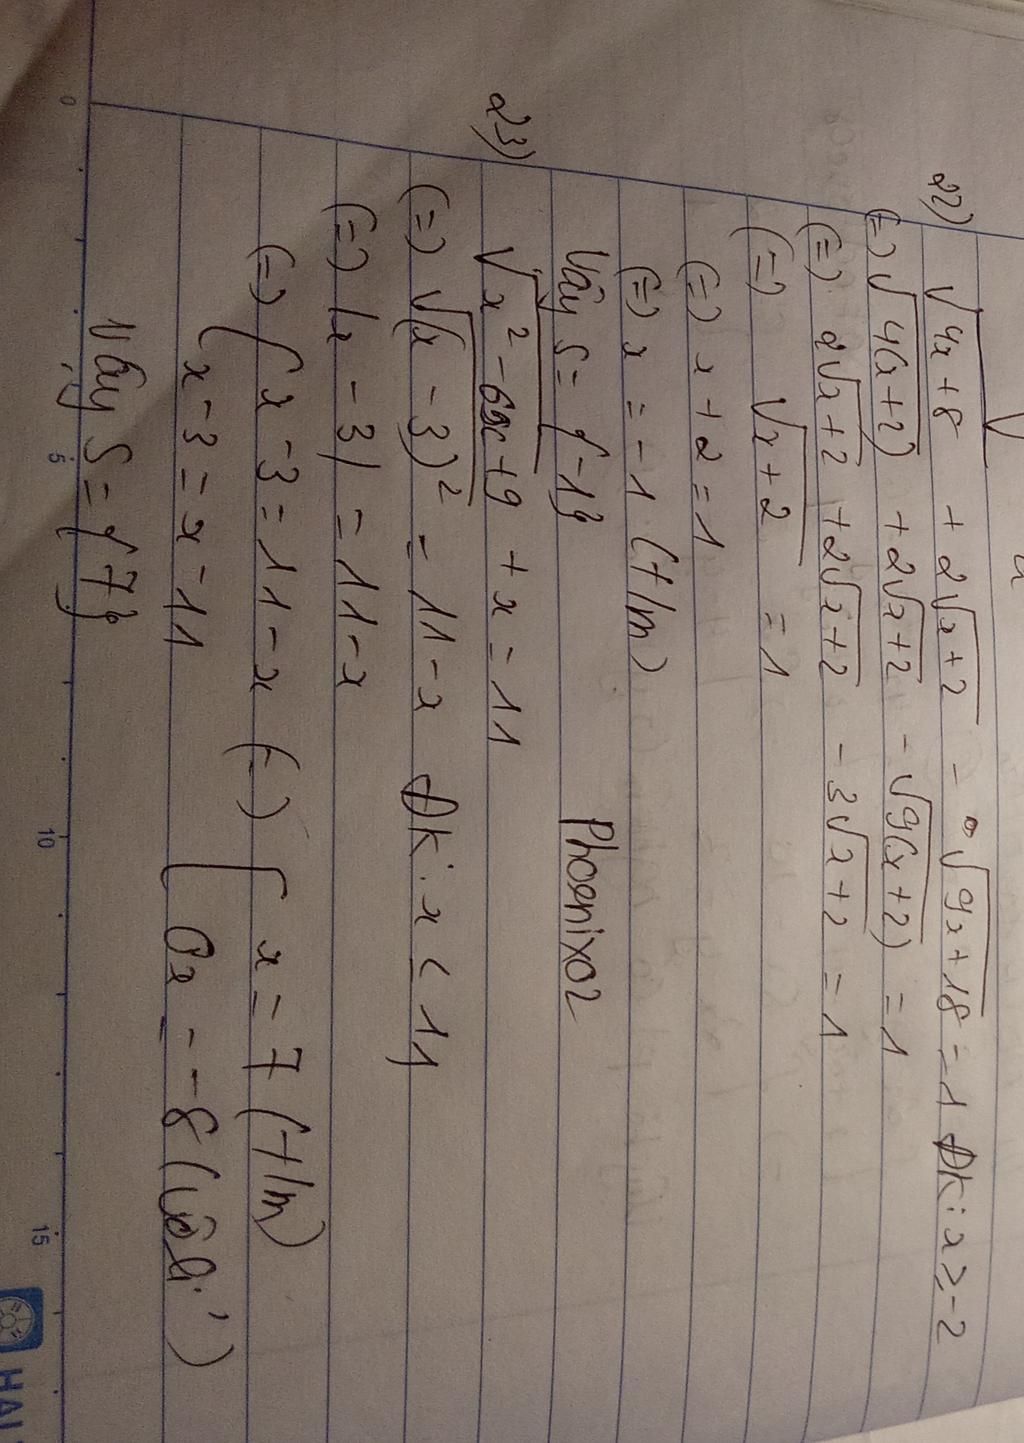 22) √4x+8 + 2√x+2 - √9x+18 = 1 ĐK: x ≥ -2
(=) √4(x+2) + 2√x+2 - √9(x+2) = 1
(=) 2√x+2 + 2√x+2 - 3√x+2 = 1
(=) √x+2 = 1
(=) x+2 = 1
(=) x = -1 (t/m)
Vậy S = {-1}
Phoenixo2
23) √x²-6x+9 + x = 11
(=) √(x-3)² = 11-x ĐK: x < 11
(=) |x-3| = 11-x
(=) [ x-3 = 11-x (=) [ x = 7 (t/m)
x-3 = x-11 0x = -8 (vô lí)
Vậy S = {7}
0 5 10 15
HẢI